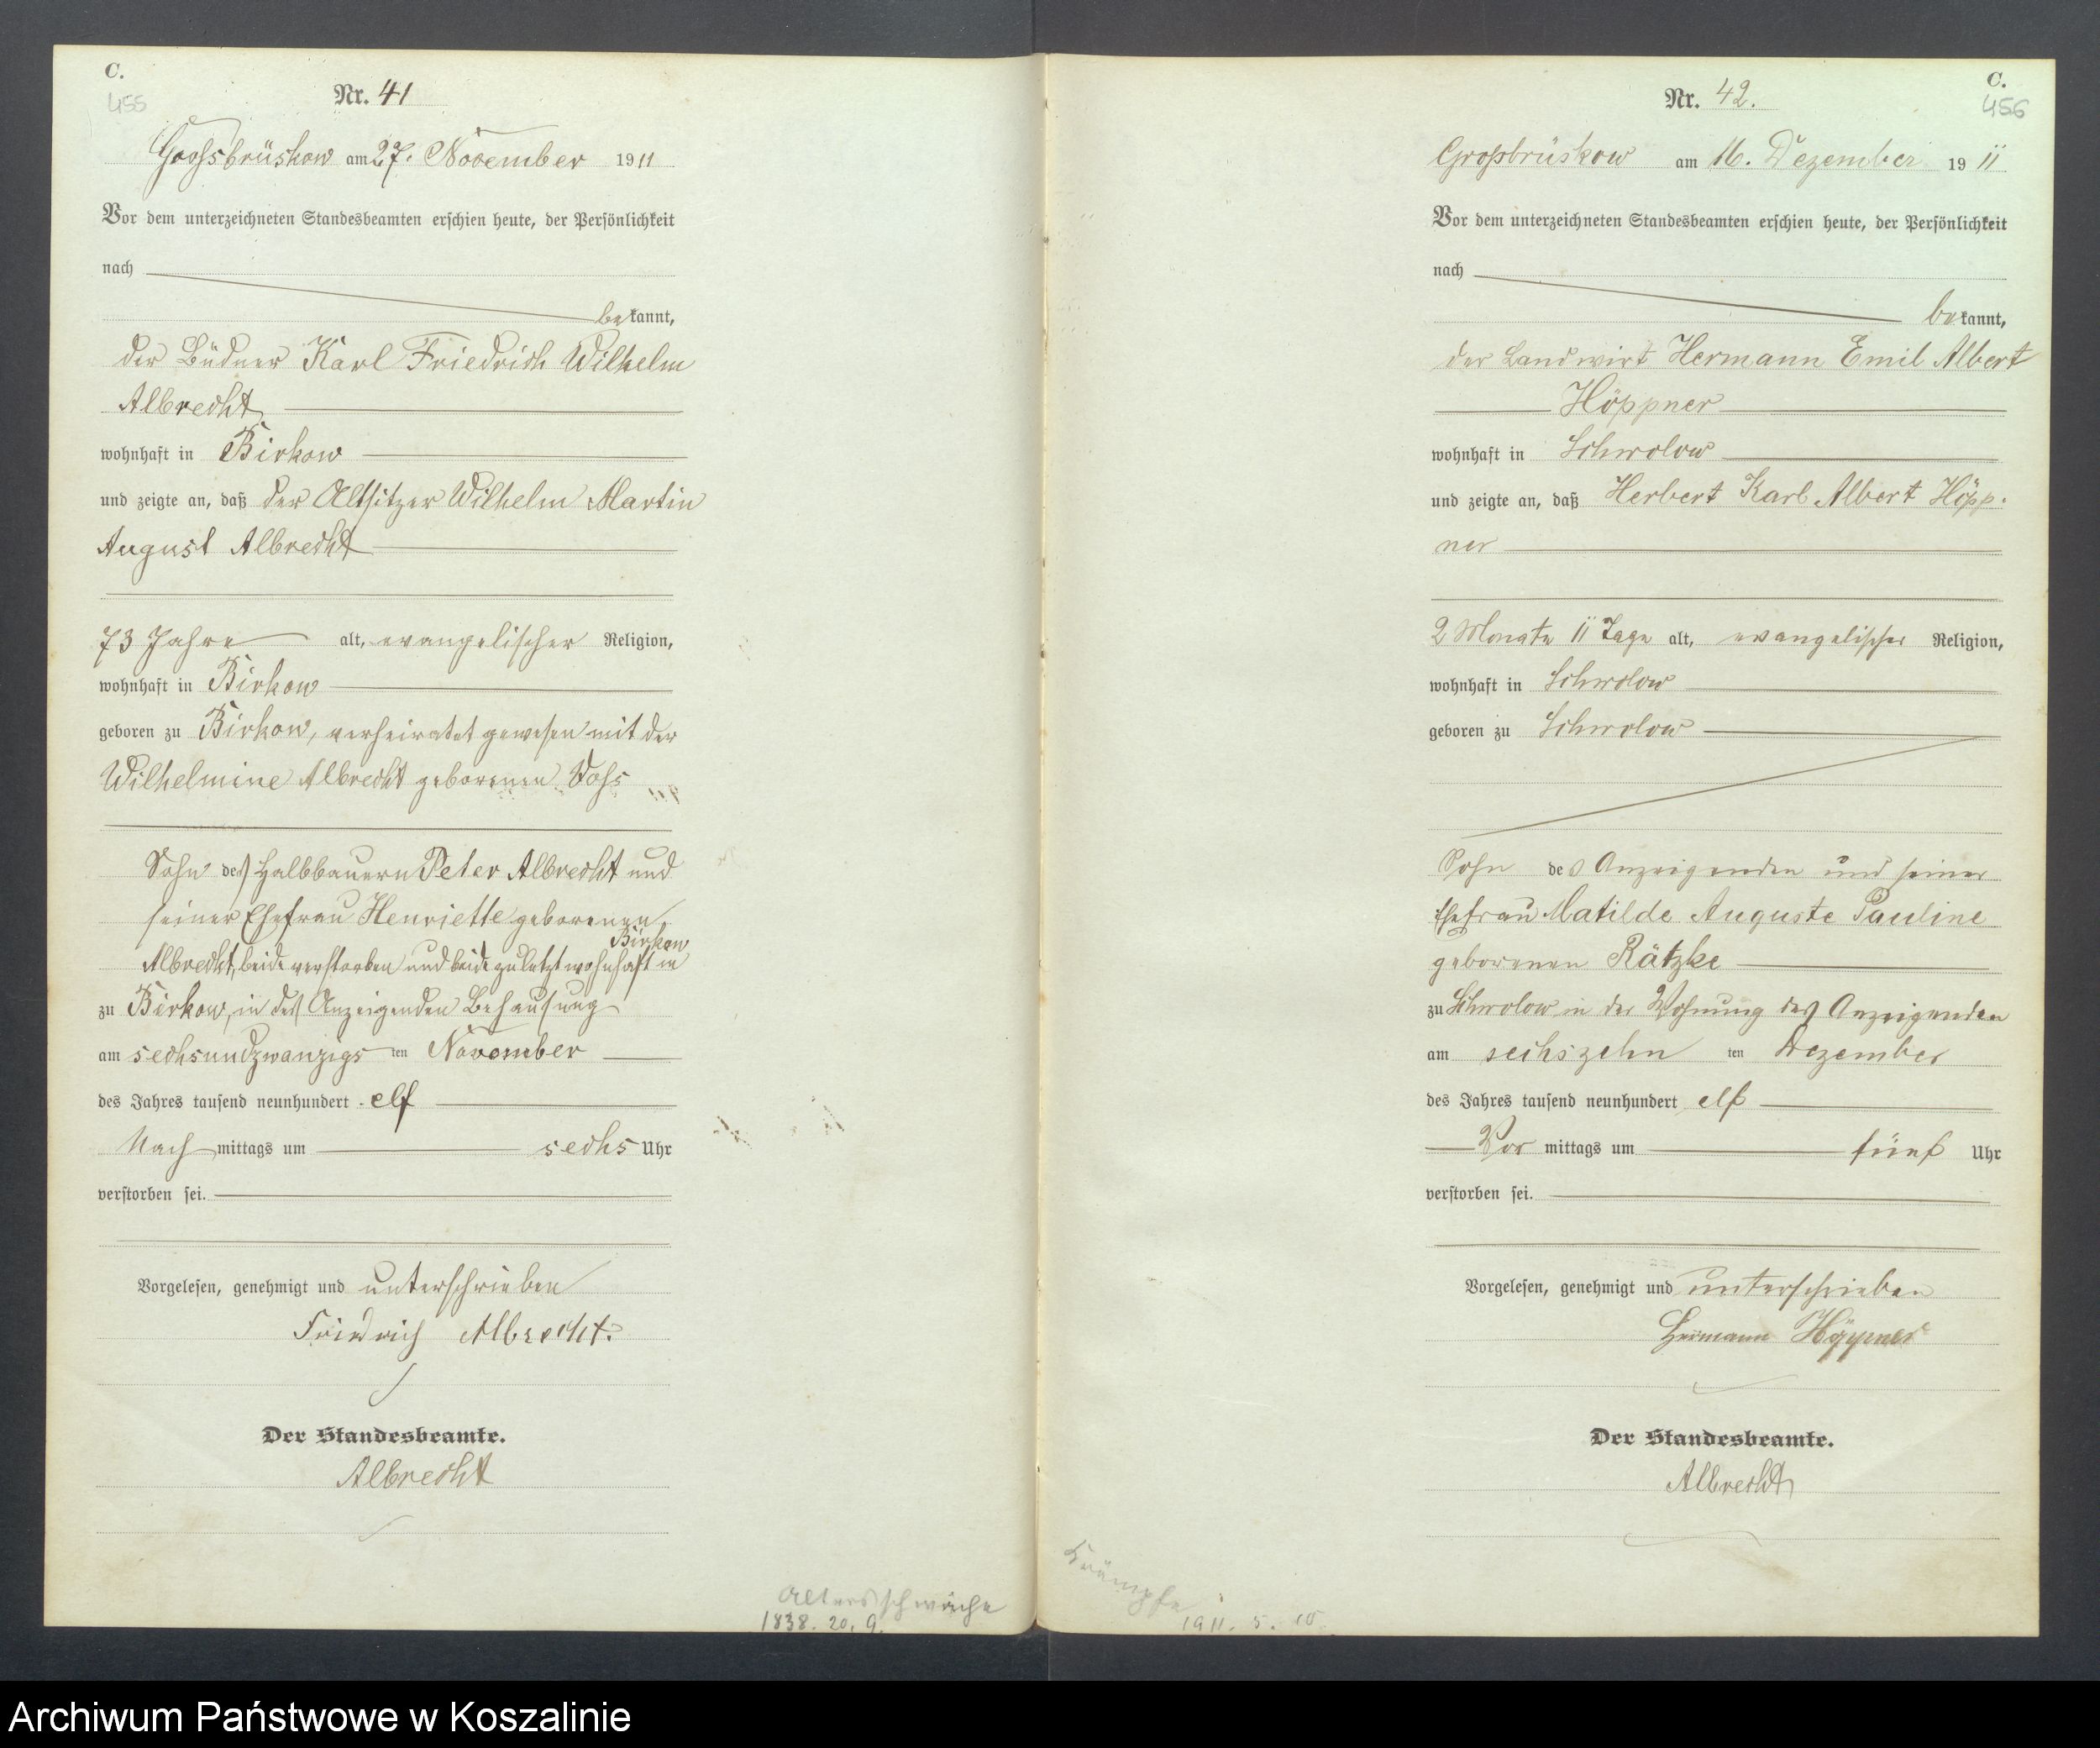 C.
455
Nr. 41
Grossbrüskow am 27. November 1911
Vor dem unterzeichneten Standesbeamten erschien heute, der Persönlichkeit
nach
bekannt,
der Büdner Karl Friedrich Wilhelm
Albrecht
wohnhaft in Birkow
und zeigte an, daß der Altsitzer Wilhelm Martin
August Albrecht
73 Jahre alt, evangelischer Religion,
wohnhaft in Birkow
geboren zu Birkow, verheiratet gewesen mit der
Wilhelmine Albrecht geborenen Voss
Sohn des Halbbauern Peter Albrecht und
seiner Ehefrau Henriette geborenen
Albrecht, beide verstorben und beide zuletzt wohnhaft in Birkow
zu Birkow, in des Anzeigenden Behausung
am sechsundzwanzigsten November
des Jahres tausend neunhundert elf
Nachmittags um sechs Uhr
verstorben sei.
Vorgelesen, genehmigt und unterschrieben
Friedrich Albrecht.
Der Standesbeamte.
Albrecht
Altersschwäche
1838. 20. 9.
C.
456
Nr. 42.
Großbrüskow am 16. Dezember 1911
Vor dem unterzeichneten Standesbeamten erschien heute, der Persönlichkeit
nach
bekannt,
der Landwirt Hermann Emil Albert
Höppner
wohnhaft in Schwolow
und zeigte an, daß Herbert Karl Albert Höpp-
ner
2 Monate 11 Tage alt, evangelischer Religion,
wohnhaft in Schwolow
geboren zu Schwolow
Sohn des Anzeigenden und seiner
Ehefrau Matilde Auguste Pauline
geborenen Rätzke
zu Schwolow in der Wohnung des Anzeigenden
am sechszehnten Dezember
des Jahres tausend neunhundert elf
Vormittags um fünf Uhr
verstorben sei.
Vorgelesen, genehmigt und unterschrieben
Hermann Höppner
Der Standesbeamte.
Albrecht
Krämpfe
1911. 5. 10
Archiwum Państwowe w Koszalinie